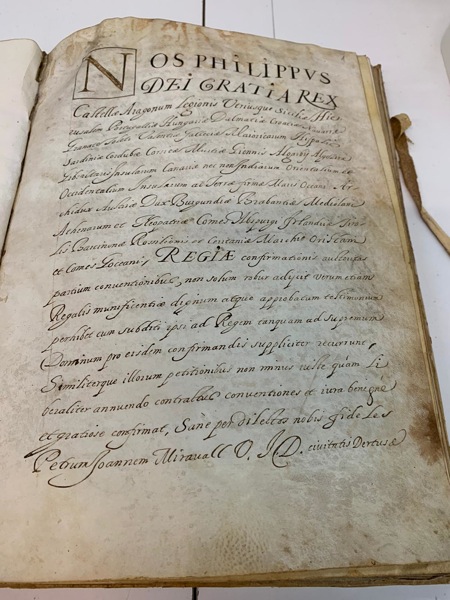 NOS PHILIPPVS
DEI GRATIA REX
Castellæ Aragonum Legionis Vtriusque Siciliæ Hie-
rusalem Portugalliæ Hungariæ Dalmatiæ Croatiæ Nauarræ
Granatæ Toleti Valentiæ Galletiæ Maioricarum Hispa-
Sardiniæ Cordubæ Corsicæ Murtiæ Giennis Algarbij Algeziræ
Gibraltaris Insularum Canariæ nec non Indiarum Orientalium et
Occidentalium Insularum ac Terræ firmæ Maris Oceani Ar-
chidux Austriæ Dux Burgundiæ Brabantiæ Mediolani
Athenarum et Neopatriæ Comes Abspurgi Flandriæ Tiro-
lis Barcinonæ Rossilionis et Ceritaniæ Marchio Oristani
et Comes Goceani, REGIÆ confirmationis authoritas
partium conventionibus, non solum robur adijcit verum etiam
Regalis munificentiæ dignum atque approbatum testimonium
perhibet cum subditi ipsi ad Regem tanquam ad supremum
Dominum pro eisdem confirmandis suppliciter recurrunt,
Similiterque illorum petitionibus non minus iuste quàm li
beraliter annuendo contractus conventiones et iura benigne
et gratiose confirmat, Sane per dilectos nobis fideles
Petrum Joannem Miravall V. J. D. civitatis Dertusæ